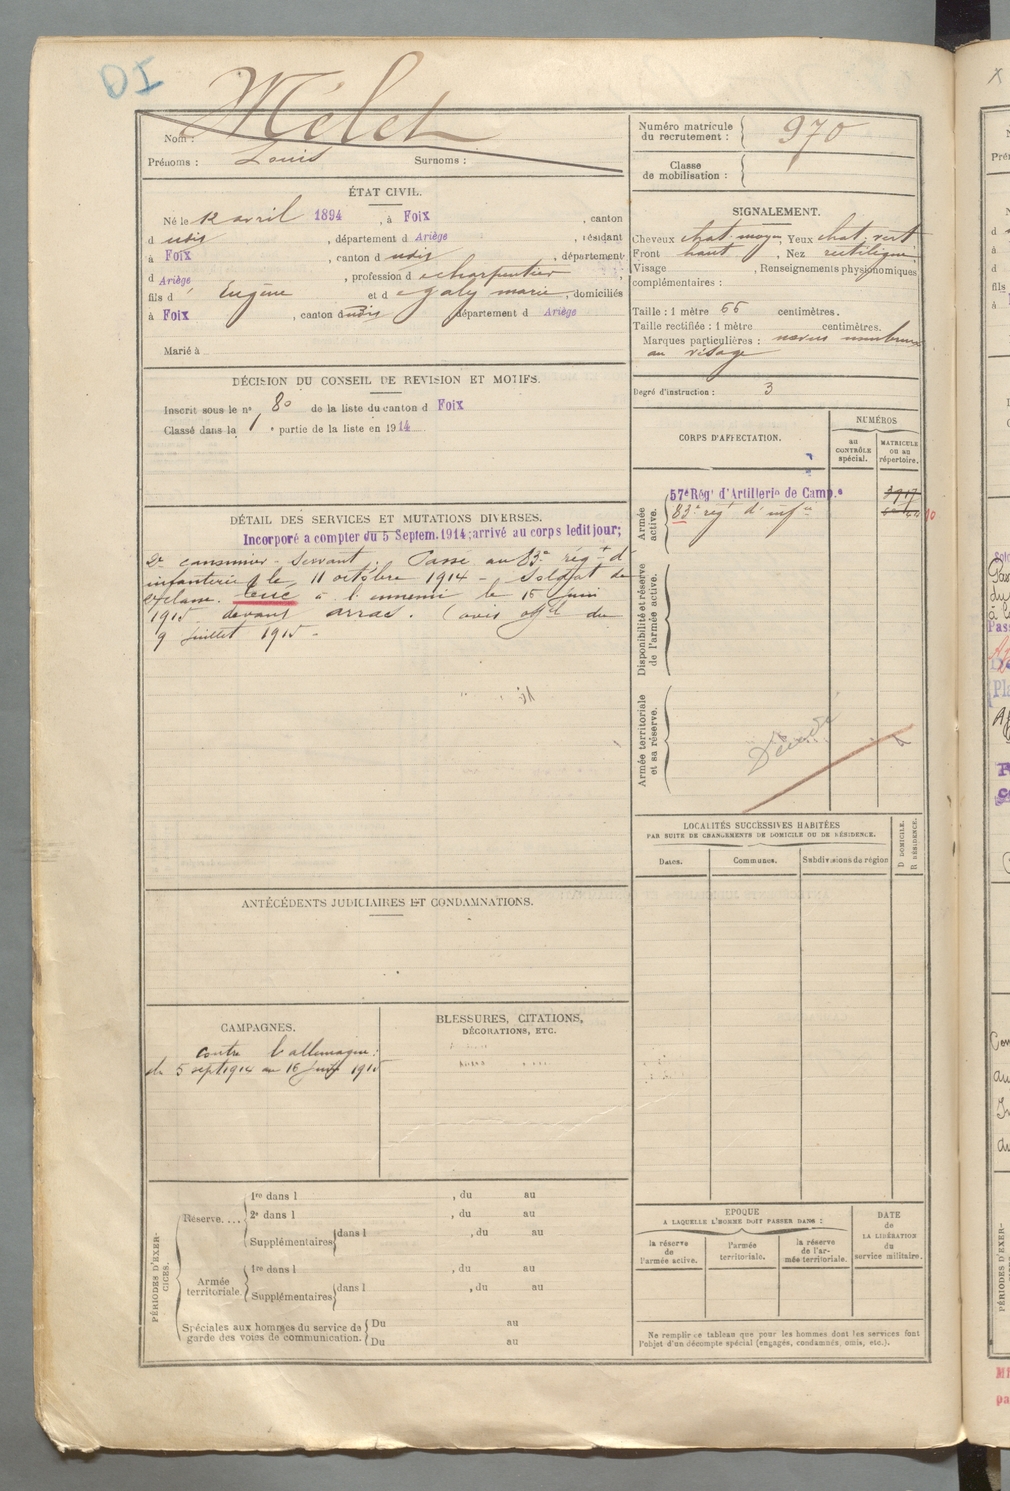 DI
Nom : Mélet
Prénoms : Louis Surnoms :
Numéro matricule du recrutement : 970
Classe de mobilisation :
ÉTAT CIVIL.
Né le 12 avril 1894, à Foix, canton
d udis, département d Ariège, résidant
à Foix, canton d udis, département
d Ariège, profession d e charpentier
fils d' Eugène et d e Galy marie, domiciliés
à Foix, canton d udis département d Ariège
Marié à
SIGNALEMENT.
Cheveux chat. moyen, Yeux chat. vert
Front haut, Nez rectiligne
Visage, Renseignements physionomiques
complémentaires :
Taille : 1 mètre 66 centimètres.
Taille rectifiée : 1 mètre centimètres.
Marques particulières : nævus
au visage
Degré d'instruction : 3
DÉCISION DU CONSEIL DE REVISION ET MOTIFS.
Inscrit sous le n° 80 de la liste du canton d Foix
Classé dans la 1e partie de la liste en 1914
DÉTAIL DES SERVICES ET MUTATIONS DIVERSES.
Incorporé a compter du 5 Septem. 1914; arrivé au corps ledit jour;
2e canonnier-servant. Passé au 83e régt d'
infanterie le 11 octobre 1914 - Soldat de
2e classe. tué à l'ennemi le 16 juin
1915 devant arras. (avis offel du
9 juillet 1915 -
CORPS D'AFFECTATION.
NUMÉROS
au CONTRÔLE spécial.
MATRICULE ou au répertoire.
Armée active.
57e Régt d'Artillerie de Camp.e
83e régt d'infie
Disponibilité et réserve de l'armée active.
Armée territoriale et sa réserve.
LOCALITÉS SUCCESSIVES HABITÉES
PAR SUITE DE CHANGEMENTS DE DOMICILE OU DE RÉSIDENCE.
Dates. Communes. Subdivisions de région D DOMICILE. R RÉSIDENCE.
ANTÉCÉDENTS JUDICIAIRES ET CONDAMNATIONS.
CAMPAGNES.
contre l'allemagne :
du 5 sept 1914 au 16 juin 1915
BLESSURES, CITATIONS,
DÉCORATIONS, ETC.
PÉRIODES D'EXERCICES.
Réserve....
1re dans l , du au
2e dans l , du au
Supplémentaires dans l , du au
Armée territoriale.
1re dans l , du au
Supplémentaires dans l , du au
Spéciales aux hommes du service de
garde des voies de communication.
Du au
Du au
ÉPOQUE
A LAQUELLE L'HOMME DOIT PASSER DANS :
la réserve de l'armée active.
l'armée territoriale.
la réserve de l'armée territoriale.
DATE de LA LIBÉRATION du service militaire.
Ne remplir ce tableau que pour les hommes dont les services font
l'objet d'un décompte spécial (engagés, condamnés, omis, etc.).